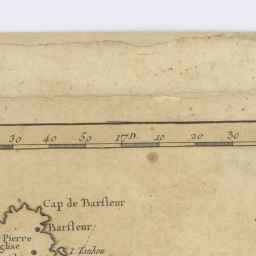 30 40 50 17D. 10 20 30
Cap de Barfleur
Barfleur
Pierre
glise
I. Tauhou